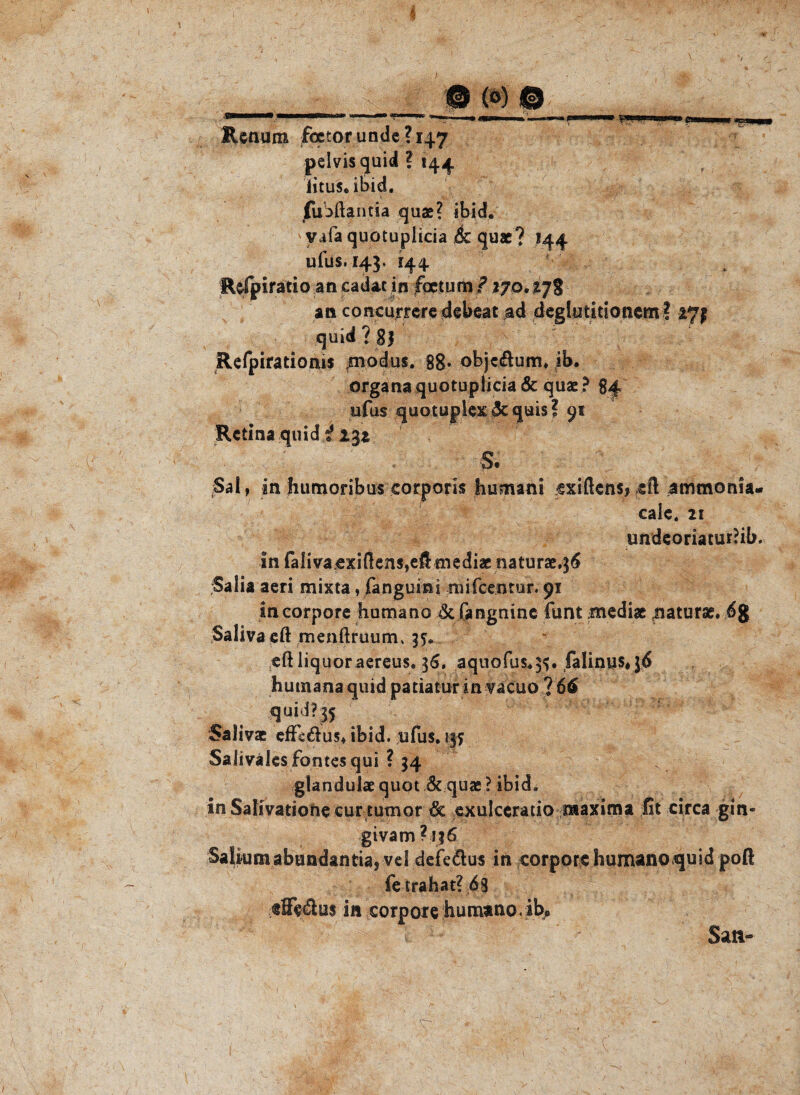 ❁ (o) ❁
Renum fœtor unde? 147
pelvis quid? 144
ſitus. ibid.
ſubſtantia quæ? ibid.
vaſa quotuplicia & quæ? 144
uſus. 143. 144
Reſpiratio an cadat in fœtum? 270. 278
an concurrere debeat ad deglutitionem? 275
quid? 83
Reſpirationis modus. 88. objectum. ib.
organa quotuplicia & quæ? 84
uſus quotuplex & quis? 91
Retina quid? 232
S.
Sal, in humoribus corporis humani exiſtens, eſt ammonia-
cale. 21
unde oriatur? ib.
in ſaliva exiſtens, eſt mediæ naturæ. 36
Salia aeri mixta, ſanguini miſcentur. 91
in corpore humano & ſangnine ſunt mediæ naturæ. 68
Saliva eſt menſtruum. 35.
eſt liquor aereus. 36. aquoſus. 35. ſalinus. 36
humana quid patiatur in vacuo? 66
quid? 35
Salivæ effectus. ibid. uſus. 135
Salivales fontes qui? 34
glandulæ quot & quæ? ibid.
in Salivatione cur tumor & exulceratio maxima fit circa gin-
givam? 136
Salium abundantia, vel defectus in corpore humano quid poſt
ſe trahat? 68
effectus in corpore humano. ib.
San-